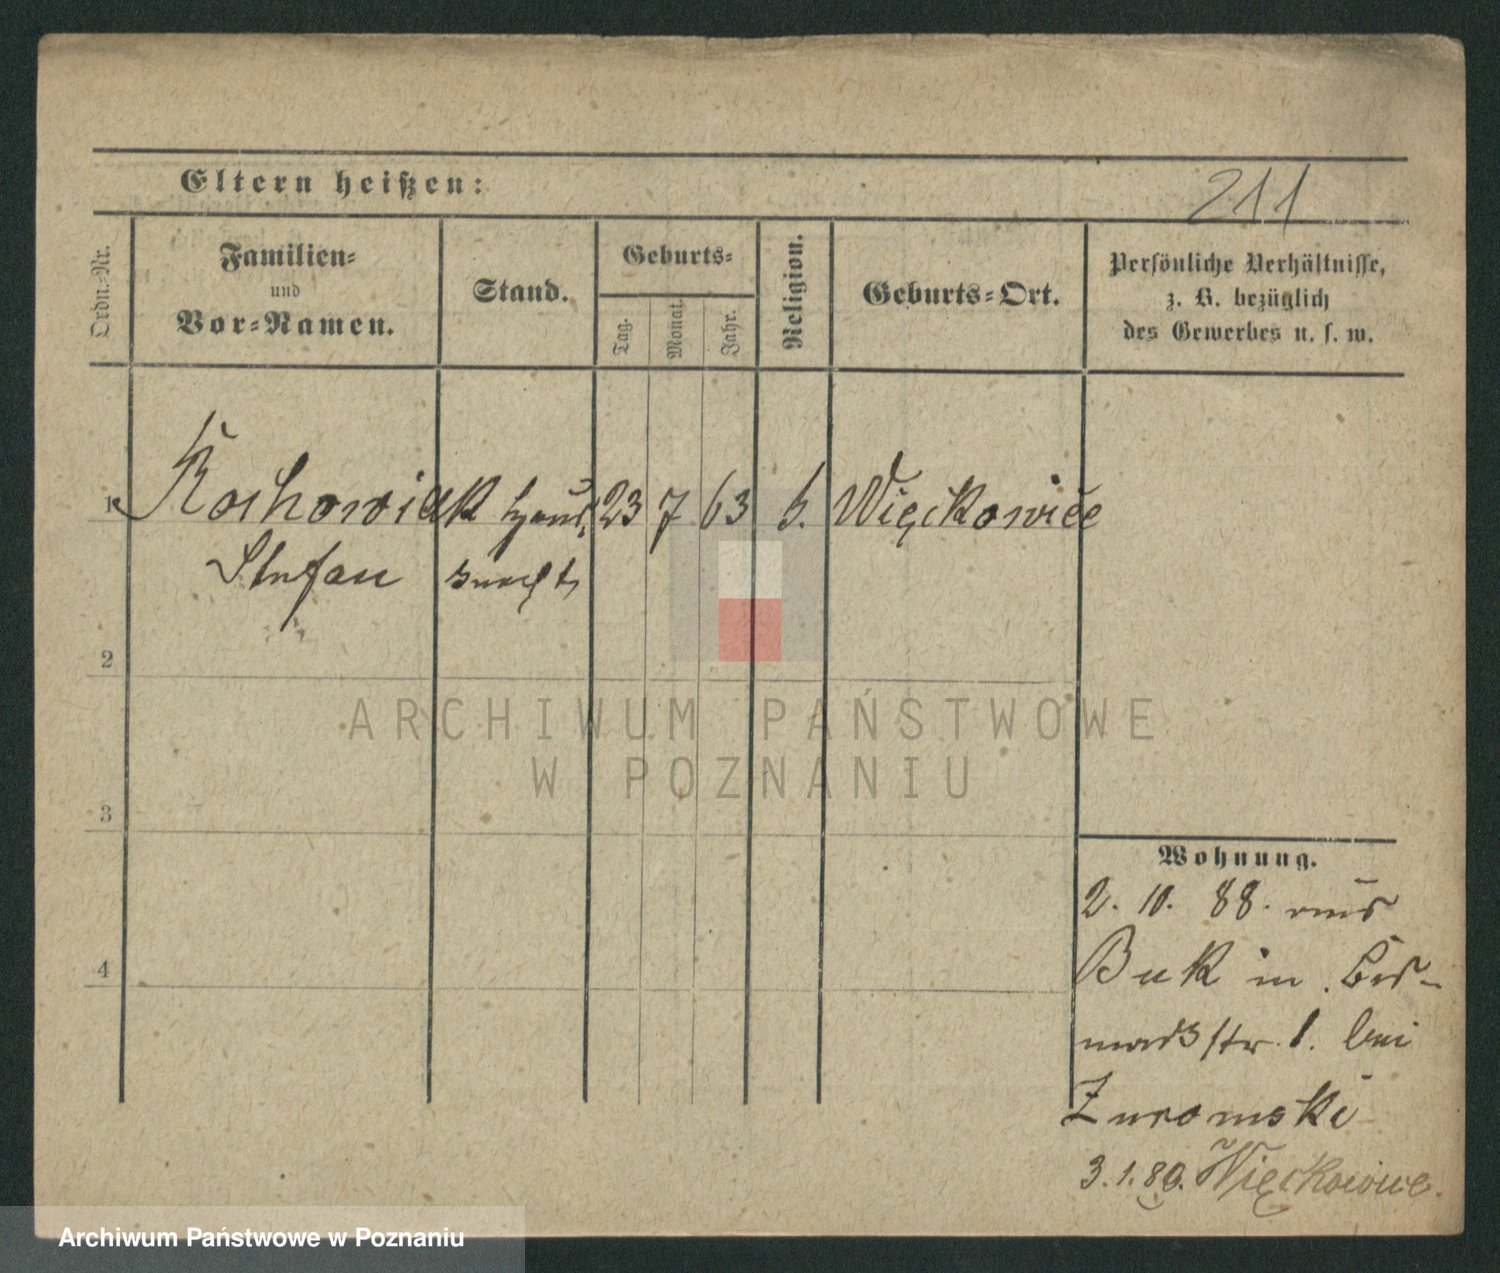 Eltern heißen:
211
Ordn.-Nr.
Familien-
und
Vor-Namen.
Stand.
Geburts-
Tag.
Monat.
Jahr.
Religion.
Geburts-Ort.
Persönliche Verhältnisse,
z. B. bezüglich
des Gewerbes u. s. w.
1 Kochowiak Haus 23 7 63 k. Więckowice
Stefan knecht
2
3
4
Wohnung.
2. 10. 88. aus
Buk in
str. 1. bei
Zuromski
3.1.89. Więckowice.
ARCHIWUM PAŃSTWOWE
W POZNANIU
Archiwum Państwowe w Poznaniu